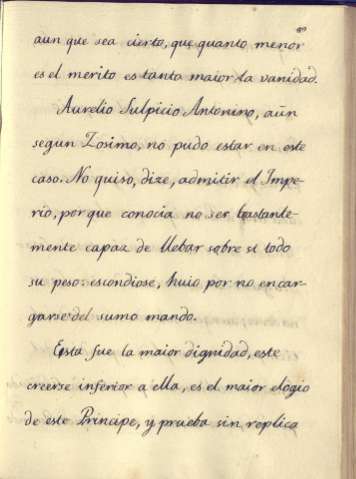 aun que sea cierto, que quanto menor
es el merito es tanta maior la vanidad.
Aurelio Sulpicio Antonino, aún
segun Zosimo, no pudo estar en este
caso. No quiso, dize, admitir el Impe-
rio, por que conocia no ser bastante-
mente capaz de llebar sobre si todo
su peso: escondiose, huio por no encar-
garse del sumo mando.
Esta fue la maior dignidad, este
creerse inferior a ella, es el maior elogio
de este Principe, y prueba sin replica